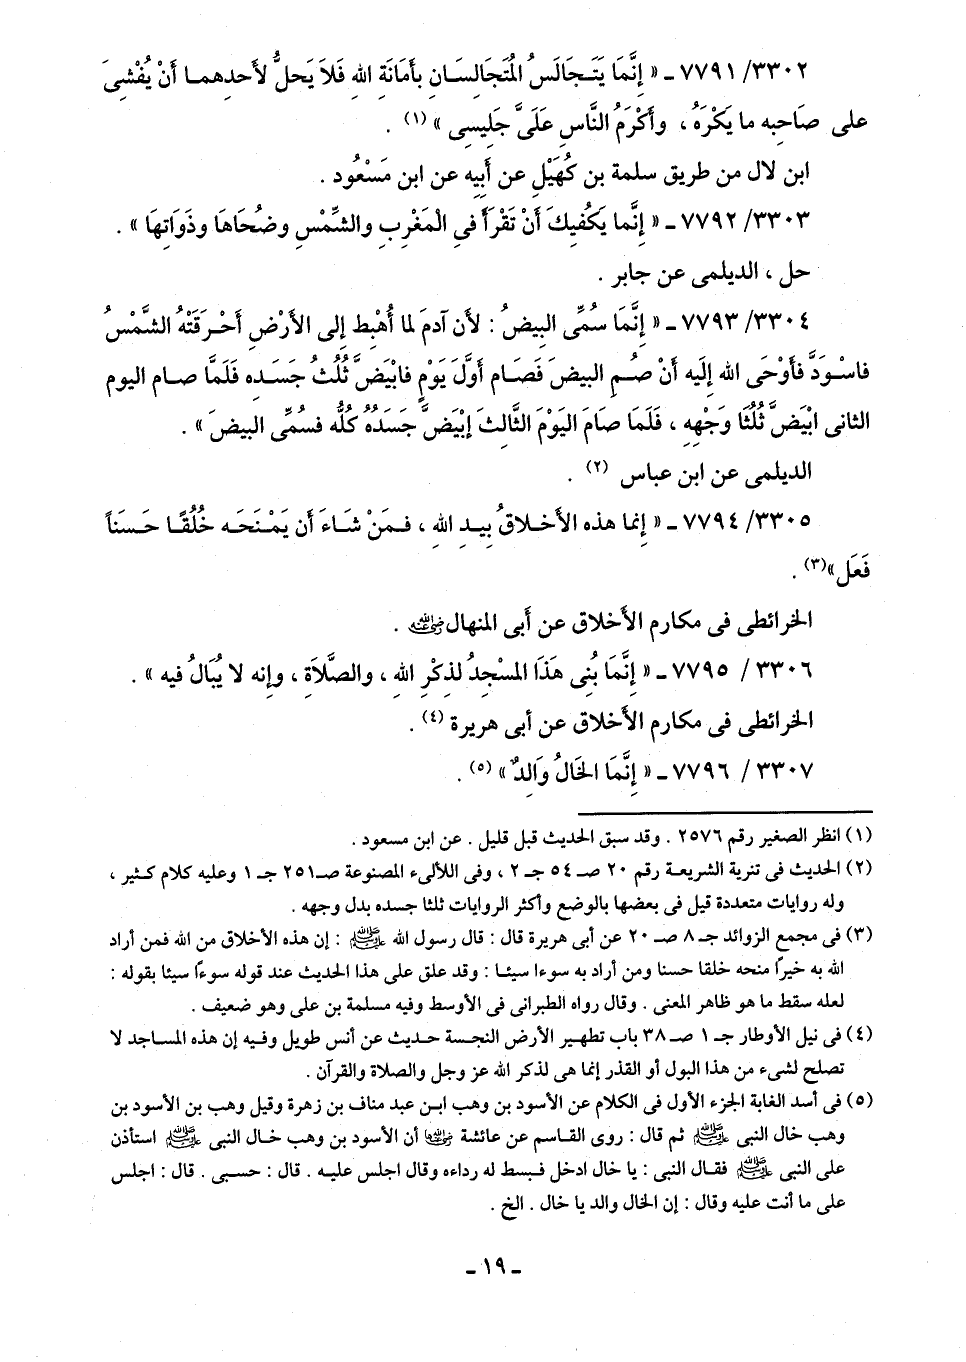 ٣٣٠٢/ ٧٧٩١ ـ « إِنَّمَا يَتَجَالَسُ الْمُتَجَالِسَانِ بِأَمَانَةِ اللهِ فَلاَ يَحلُّ لأَحدِهما أَنْ يُفْشِىَ
على صَاحِبِه ما يَكْرَهُ ، وأَكْرَمُ النَّاسِ عَلَىَّ جَلِيسِى » (١) .
ابن لال من طريق سلمة بن كُهَيْلِ عن أَبِيه عن ابن مَسْعُود .
٣٣٠٣/ ٧٧٩٢ ـ « إِنَّما يَكْفِيكَ أَنْ تَقْرَأَ فى الْمَغْرِبِ والشَّمْسِ وضُحَاهَا وذَوَاتِهَا » .
حل ، الديلمى عن جابر .
٣٣٠٤/ ٧٧٩٣ ـ « إِنَّمَا سُمِّى البيضُ : لأَن آدمَ لما أُهْبِط إِلى الأَرْضِ أَحْرَقَتْهُ الشَّمْسُ
فاسْوَدَّ فأَوْحَى الله إِلَيه أَنْ صُمِ البيضَ فَصَام أَوَّلَ يَوْمٍ فابْيَضَّ ثُلُثُ جَسَدِه فَلَمَّا صام اليوم
الثانى ابْيَضَّ ثُلُثَا وَجْهِهِ ، فَلَمَا صَامَ اليَوْمَ الثَّالِثَ إبْيَضَّ جَسَدُهُ كُلُّه فسُمِّى البيضَ » .
الديلمى عن ابن عباس (٢) .
٣٣٠٥/ ٧٧٩٤ ـ « إِنما هذه الأَخلاقُ بِيدِ اللهِ ، فـمَنْ شَاءَ أَن يَمْنَحَه خُلُقًا حَسَنَاً
فَعَل»(٣) .
الخرائطى فى مكارم الأَخلاق عن أَبى المنهال رضي الله عنه .
٣٣٠٦ / ٧٧٩٥ ـ « إِنَّمَا بُنِى هَذَا المسْجِدُ لذِكْرِ اللهِ ، والصَّلاَةِ ، وإِنه لا يُبَالُ فيه » .
الخرائطى فى مكارم الأَخلاق عن أَبى هريرة (٤) .
٣٣٠٧ / ٧٧٩٦ ـ « إِنَّمَا الخَالُ وَالِدٌ » (٥) .
(١) انظر الصغير رقم ٢٥٧٦ . وقد سبق الحديث قبل قليل . عن ابن مسعود .
(٢) الحديث فى تنزية الشريعة رقم ٢٠ صـ ٥٤ جـ ٢ ، وفى اللآلىء المصنوعة صـ٢٥١ جـ ١ وعليه كلام كثير ،
وله روايات متعددة قيل فى بعضها بالوضع وأكثر الروايات ثلثا جسده بدل وجهه .
(٣) فى مجمع الزوائد جـ ٨ صـ ٢٠ عن أبى هريرة قال : قال رسول الله ﷺ : إن هذه الأخلاق من الله فمن أراد
الله به خيراً منحه خلقا حسنا ومن أراد به سوءا سيئا : وقد علق على هذا الحديث عند قوله سوءاً سيئا بقوله :
لعله سقط ما هو ظاهر المعنى . وقال رواه الطبرانى فى الأوسط وفيه مسلمة بن على وهو ضعيف .
(٤) فى نيل الأوطار جـ ١ صـ ٣٨ باب تطهير الأرض النجسة حديث عن أنس طويل وفيه إن هذه المساجد لا
تصلح لشىء من هذا البول أو القذر إنما هى لذكر الله عز وجل والصلاة والقرآن .
(٥) فى أسد الغابة الجزء الأول فى الكلام عن الأسود بن وهب ابن عبد مناف بن زهرة وقيل وهب بن الأسود بن
وهب خال النبى ﷺ ثم قال : روى القاسم عن عائشة رضي الله عنها أن الأسود بن وهب خال النبى ﷺ استأذن
على النبى ﷺ فقال النبى : يا خال ادخل فبسط له رداءه وقال اجلس عليه . قال : حسبى . قال : اجلس
على ما أنت عليه وقال : إن الخال والد يا خال . الخ .
ـ ١٩ ـ